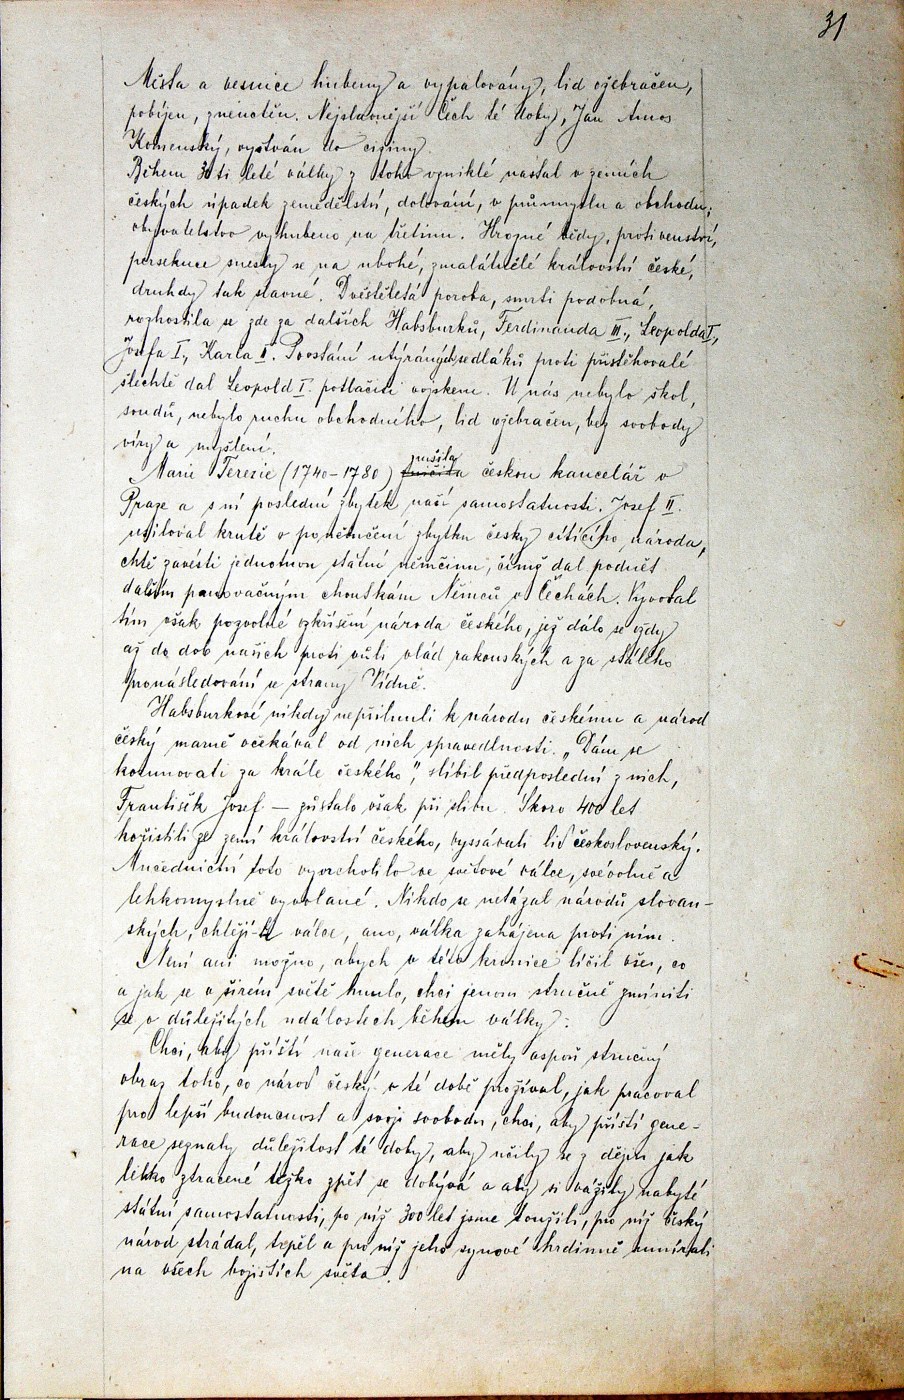 31
Města a vesnice hubeny a vypalovány, lid ožebračen,
pobíjen, zneuctěn. Nejslavnější Čech té doby, Jan Amos
Komenský, vyštván do ciziny.
Během 30ti leté války z toho vzniklé nastal v zemích
českých úpadek zemědělství, dolování, v průmyslu a obchodu;
obyvatelstvo vyhubeno na třetinu. Hrozné bědy, protivenství,
persekuce snesly se na ubohé, zmalátnělé království české,
druhdy tak slavné. Dvěstěletá poroba, smrti podobná,
rozhostila se zde za dalších Habsburků, Ferdinanda III., Leopolda I.,
Josefa I., Karla II. Povstání utýraných sedláků proti přistěhovalé
šlechtě dal Leopold I. potlačiti vojskem. U nás nebylo škol,
soudů, nebylo ruchu obchodního, lid ožebračen, bez svobody
víry a myšlení.
Marie Terezie (1740–1780) zrušila českou kancelář v
Praze a s ní poslední zbytek naší samostatnosti. Josef II.
usiloval krutě o poněmčení zbytku česky cítícího národa,
chtě zavésti jednotnou státní němčinu, čímž dal podnět
dalším panovačným choutkám Němců v Čechách. Vyvolal
tím však pozvolné vzkříšení národa českého, jež dálo se vždy
až do dob našich proti vůli vlád rakouských a za stálého
pronásledování se strany Vídně.
Habsburkové nikdy nepřilnuli k národu českému a národ
český marně očekával od nich spravedlnosti. „Dám se
korunovati za krále českého", slíbil předposlední z nich,
František Josef — zůstalo však při slibu. Skoro 400 let
kořistili ze zemí království českého, vyssávali lid československý.
Mučednictví toto vyvrcholilo ve světové válce, svévolně a
lehkomyslně vyvolané. Nikdo se netázal národů slovan-
ských, chtějí-li válce, ano, válka zahájena proti nim.
Není ani možno, abych v této kronice líčil vše, co
a jak se v širém světě hnulo, chci jenom stručně zmíniti
se o důležitých událostech během války:
Chci, aby příští naše generace měly aspoň stručný
obraz toho, co národ český v té době prožíval, jak pracoval
pro lepší budoucnost a svoji svobodu, chci, aby příští gene-
race seznaly důležitost té doby, aby učily se z dějin jak
lehko ztracené těžko zpět se dobývá a aby si vážily nabyté
státní samostatnosti, po níž 300 let jsme toužili, pro níž český
národ strádal, trpěl a pro níž jeho synové hrdinně umírali
na všech bojištích světa.